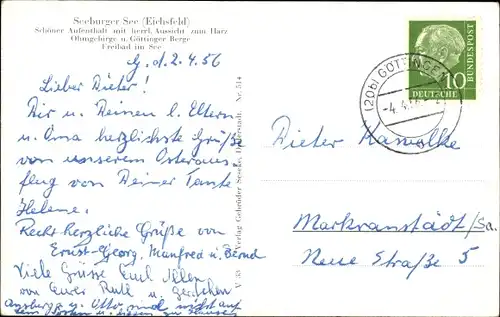 Seeburger See (Eichsfeld)
Schöner Aufenthalt mit herrl. Aussicht zum Harz
Ohmgebirge u. Göttinger Berge
Freibad im See
G. d. 2.4.56
Lieber Dieter!
Dir u. Deinen l. Eltern
u. Oma herzlichste Grüße
von unserem Osteraus-
flug von Deiner Tante
Helene.
Recht herzliche Grüße von
Ernst-Georg, Manfred u. Bernd
Viele Grüsse Euch Allen
von Euer Ruth u.
u. Otto sind nicht auf
u. zu Hause
Verlag Gebrüder Nr. 514
(20b) GÖTTINGEN
-4.4.
10
DEUTSCHE
BUNDESPOST
Dieter Kawolke
Markranstädt/Sa.
Neue Straße 5